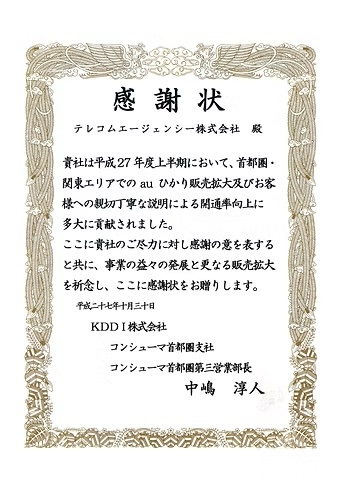 感謝状
テレコムエージェンシー株式会社 殿
貴社は平成27年度上半期において、首都圏・
関東エリアでの au ひかり販売拡大及びお客
様への親切丁寧な説明による開通率向上に
多大に貢献されました。
ここに貴社のご尽力に対し感謝の意を表する
と共に、事業の益々の発展と更なる販売拡大
を祈念し、ここに感謝状をお贈りします。
平成二十七年十月三十日
KDDI株式会社
コンシューマ首都圏支社
コンシューマ首都圏第三営業部長
中嶋 淳人